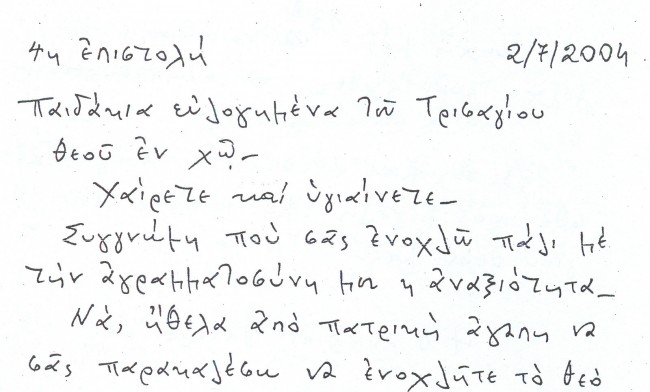 4η ἐπιστολή 2/7/2004
Παιδάκια εὐλογημένα τοῦ Τρισαγίου
Θεοῦ ἐν χῷ-
Χαίρετε καί ὑγιαίνετε-
Συγγνώμη πού σᾶς ἐνοχλῶ πάλι μέ
τήν ἀγραμματοσύνη μου ἡ ἀναξιότητα-
Νά, ἤθελα ἀπό πατρική ἀγάπη να
σᾶς παρακαλέσω να ἐνοχλῆτε τό Θεό